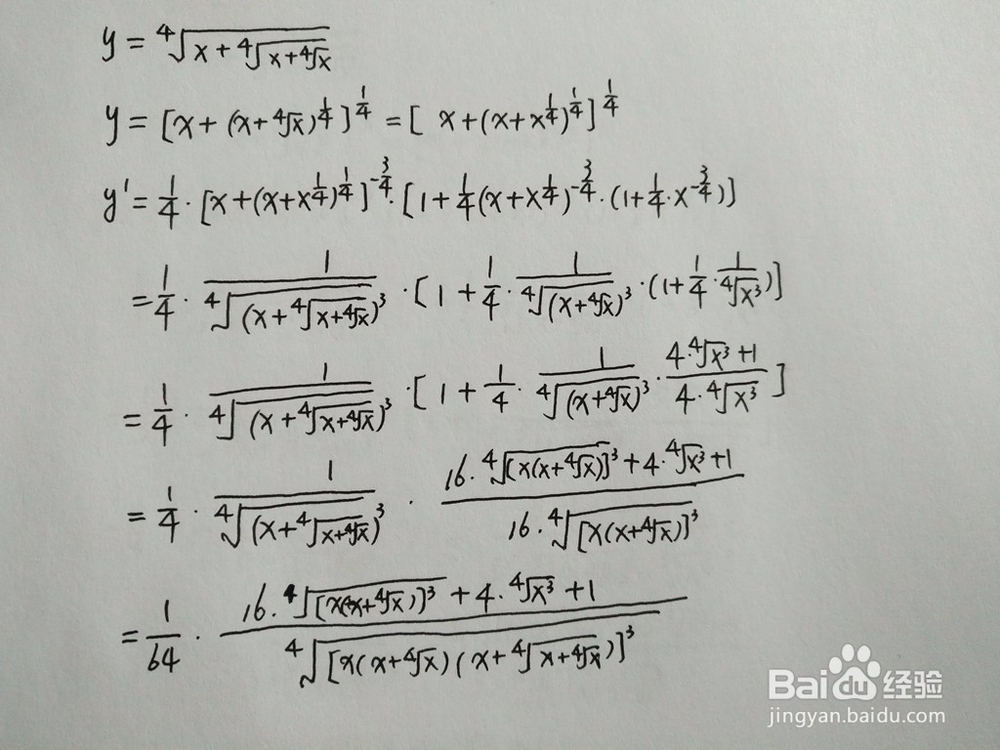 y = ⁴√(x + ⁴√(x + ⁴√x))
y = [x + (x + ⁴√x)^(1/4)]^(1/4) = [x + (x + x^(1/4))^(1/4)]^(1/4)
y' = 1/4 · [x + (x + x^(1/4))^(1/4)]^(-3/4) · [1 + 1/4 (x + x^(1/4))^(-3/4) · (1 + 1/4 · x^(-3/4))]
= 1/4 · 1/⁴√(x + ⁴√(x + ⁴√x))³ · [1 + 1/4 · 1/⁴√(x + ⁴√x)³ · (1 + 1/4 · 1/⁴√x³)]
= 1/4 · 1/⁴√(x + ⁴√(x + ⁴√x))³ · [1 + 1/4 · 1/⁴√(x + ⁴√x)³ · (4·⁴√x³ + 1)/(4·⁴√x³)]
= 1/4 · 1/⁴√(x + ⁴√(x + ⁴√x))³ · (16·⁴√[x(x + ⁴√x)]³ + 4·⁴√x³ + 1)/(16·⁴√[x(x + ⁴√x)]³)
= 1/64 · (16·⁴√[x(x + ⁴√x)]³ + 4·⁴√x³ + 1)/⁴√[x(x + ⁴√x)(x + ⁴√(x + ⁴√x))]³
Baidu经验
jingyan.baidu.com